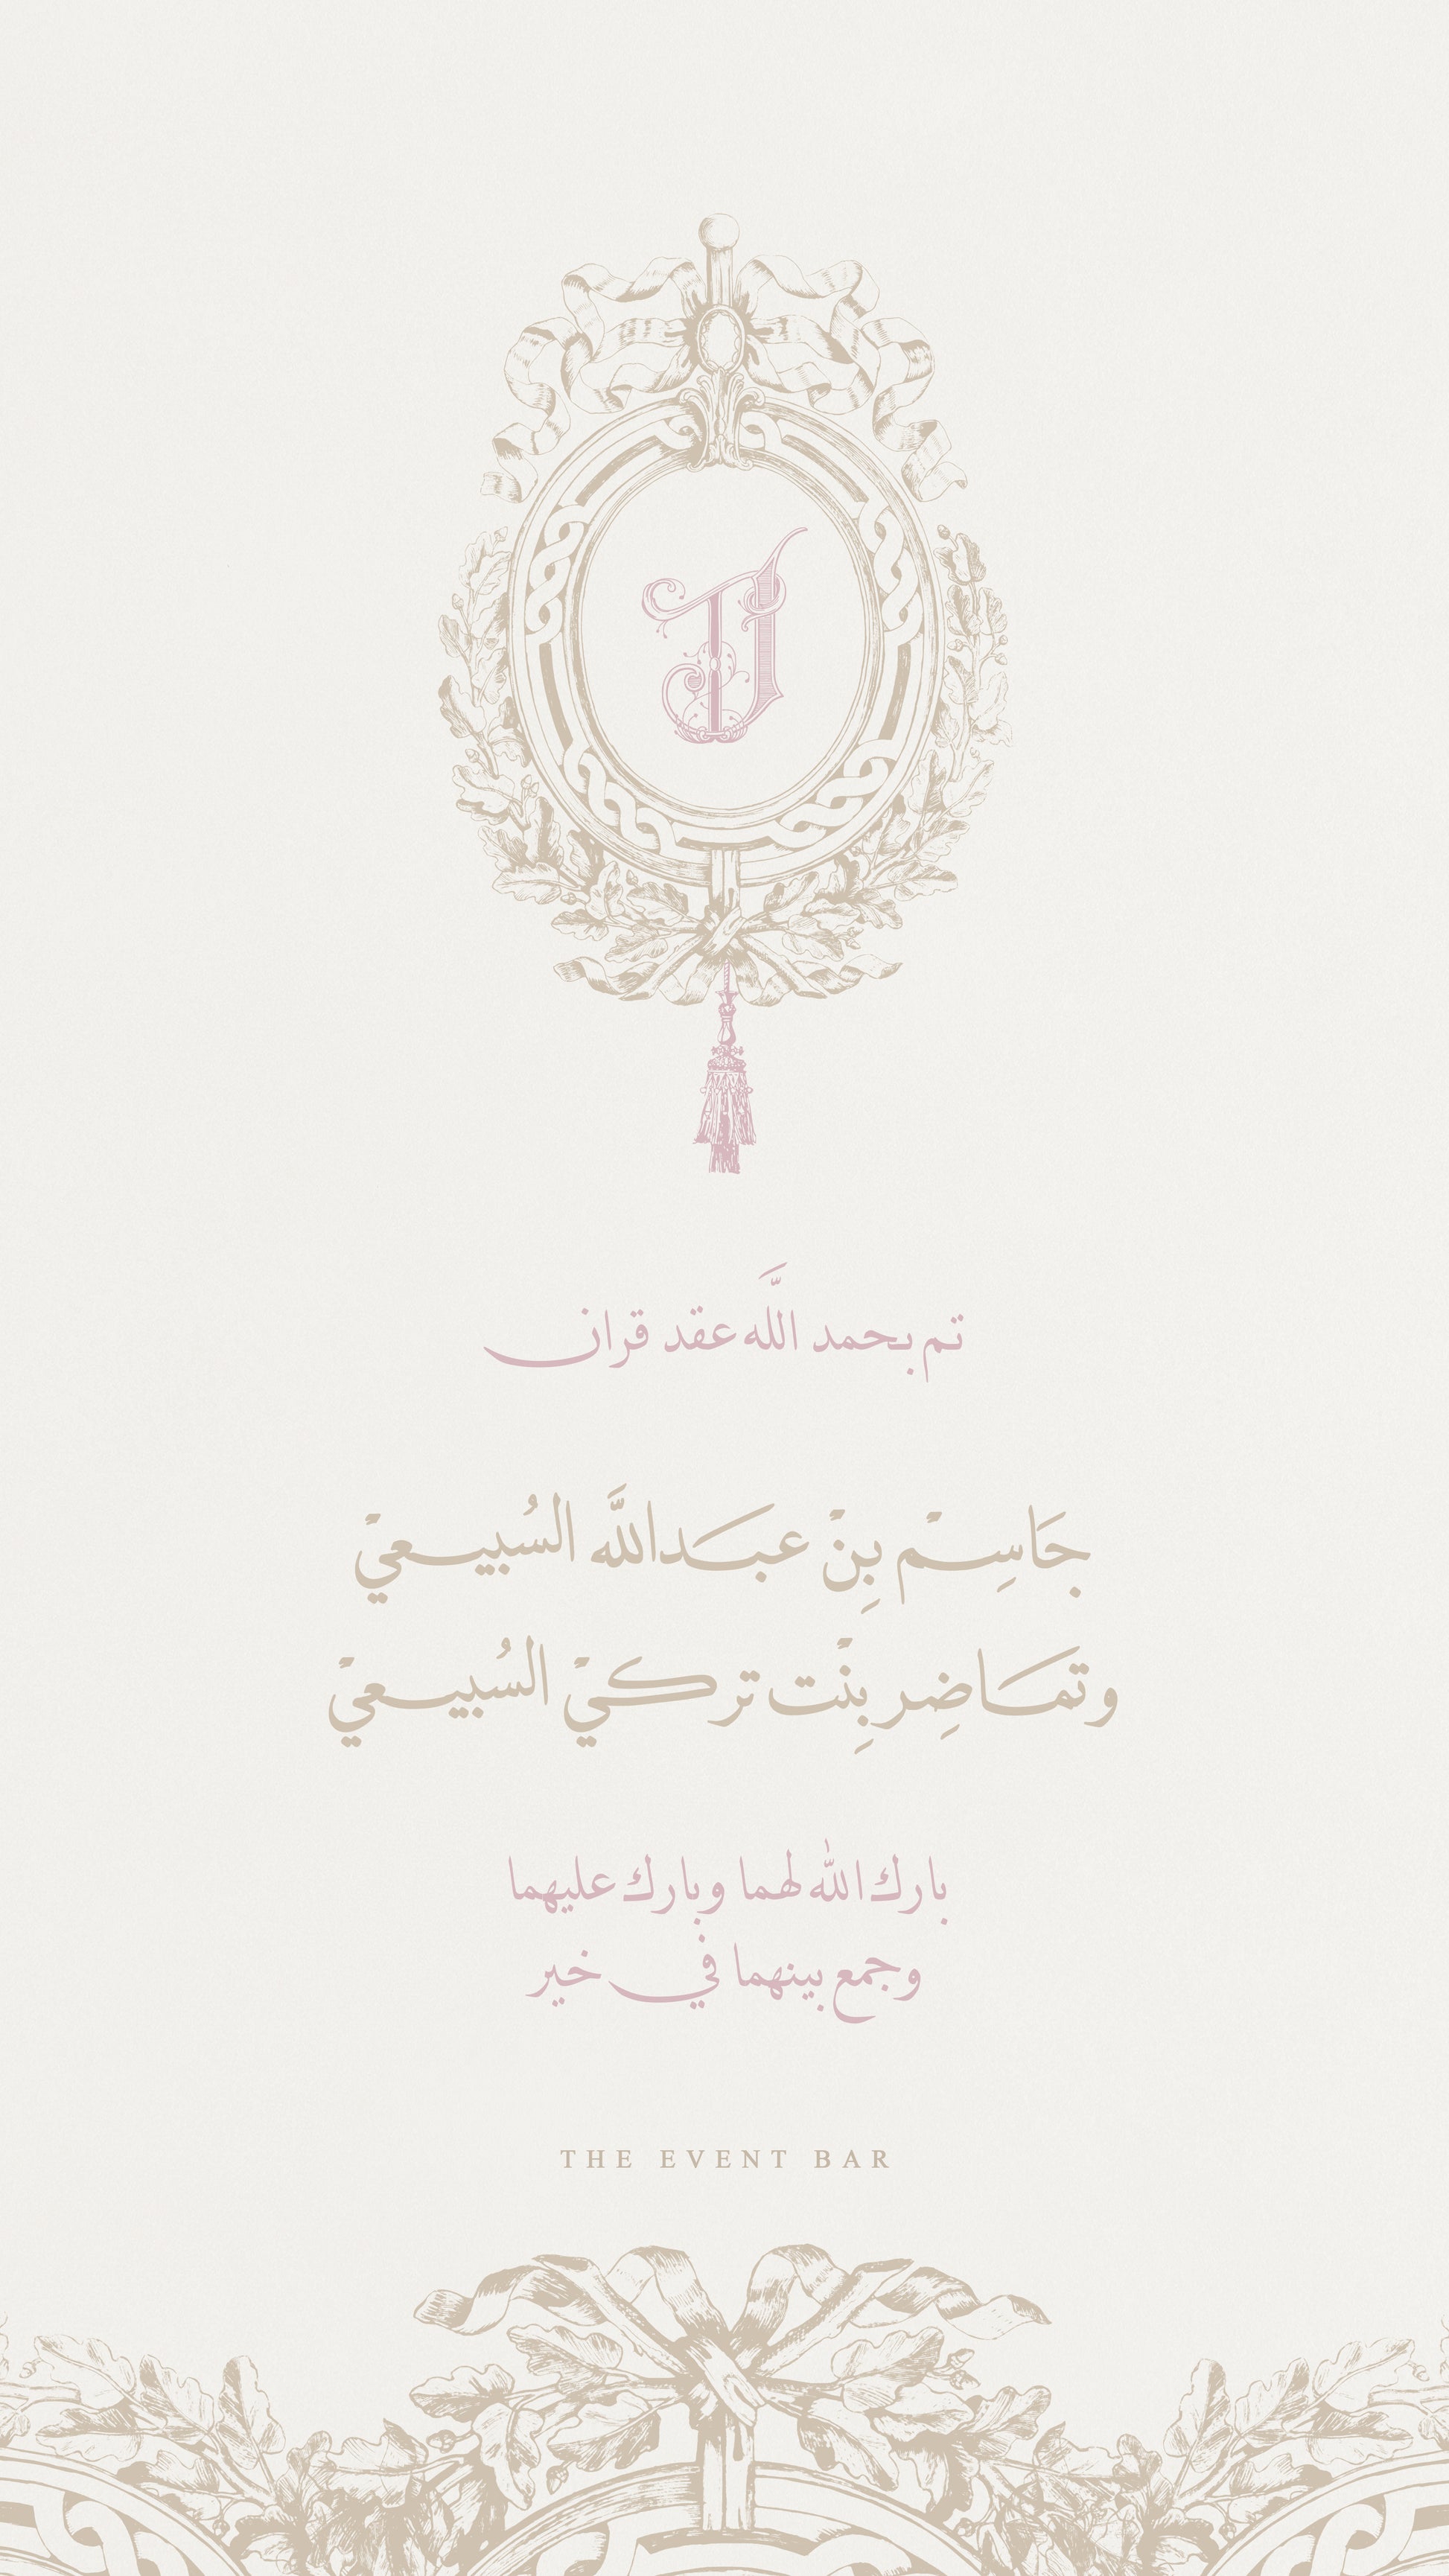 TJ
تم بحمد اللَّه عقد قران
جَاسِمْ بِنْ عبدَاللَّه السُبيعيْ
وتمَاضِر بِنْت تركيْ السُبيعيْ
بارك الله لهما وبارك عليهما
وجمع بينهما في خير
THE EVENT BAR